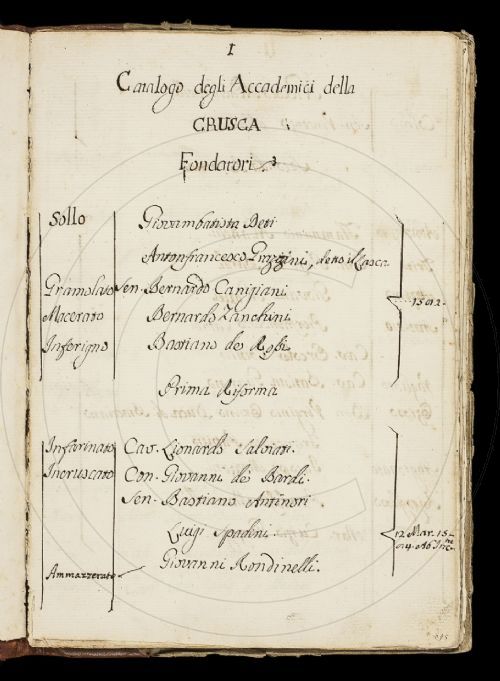 1
Catalogo degli Accademici della
CRUSCA
Fondatori
Sollo Giovambatista Deti
Antonfrancesco Grazzini, detto il Lasca
Gramolato Sen. Bernardo Canigiani
Macerato Bernardo Zanchini
Inferigno Bastiano de Rossi
Prima Riforma
Infarinato Cav. Lionardo Salviati.
Incruscato Con. Giovanni de Bardi.
Sen. Bastiano Antinori
Luigi Spadini.
Ammazzerato Giovanni Rondinelli.
12 Mar.